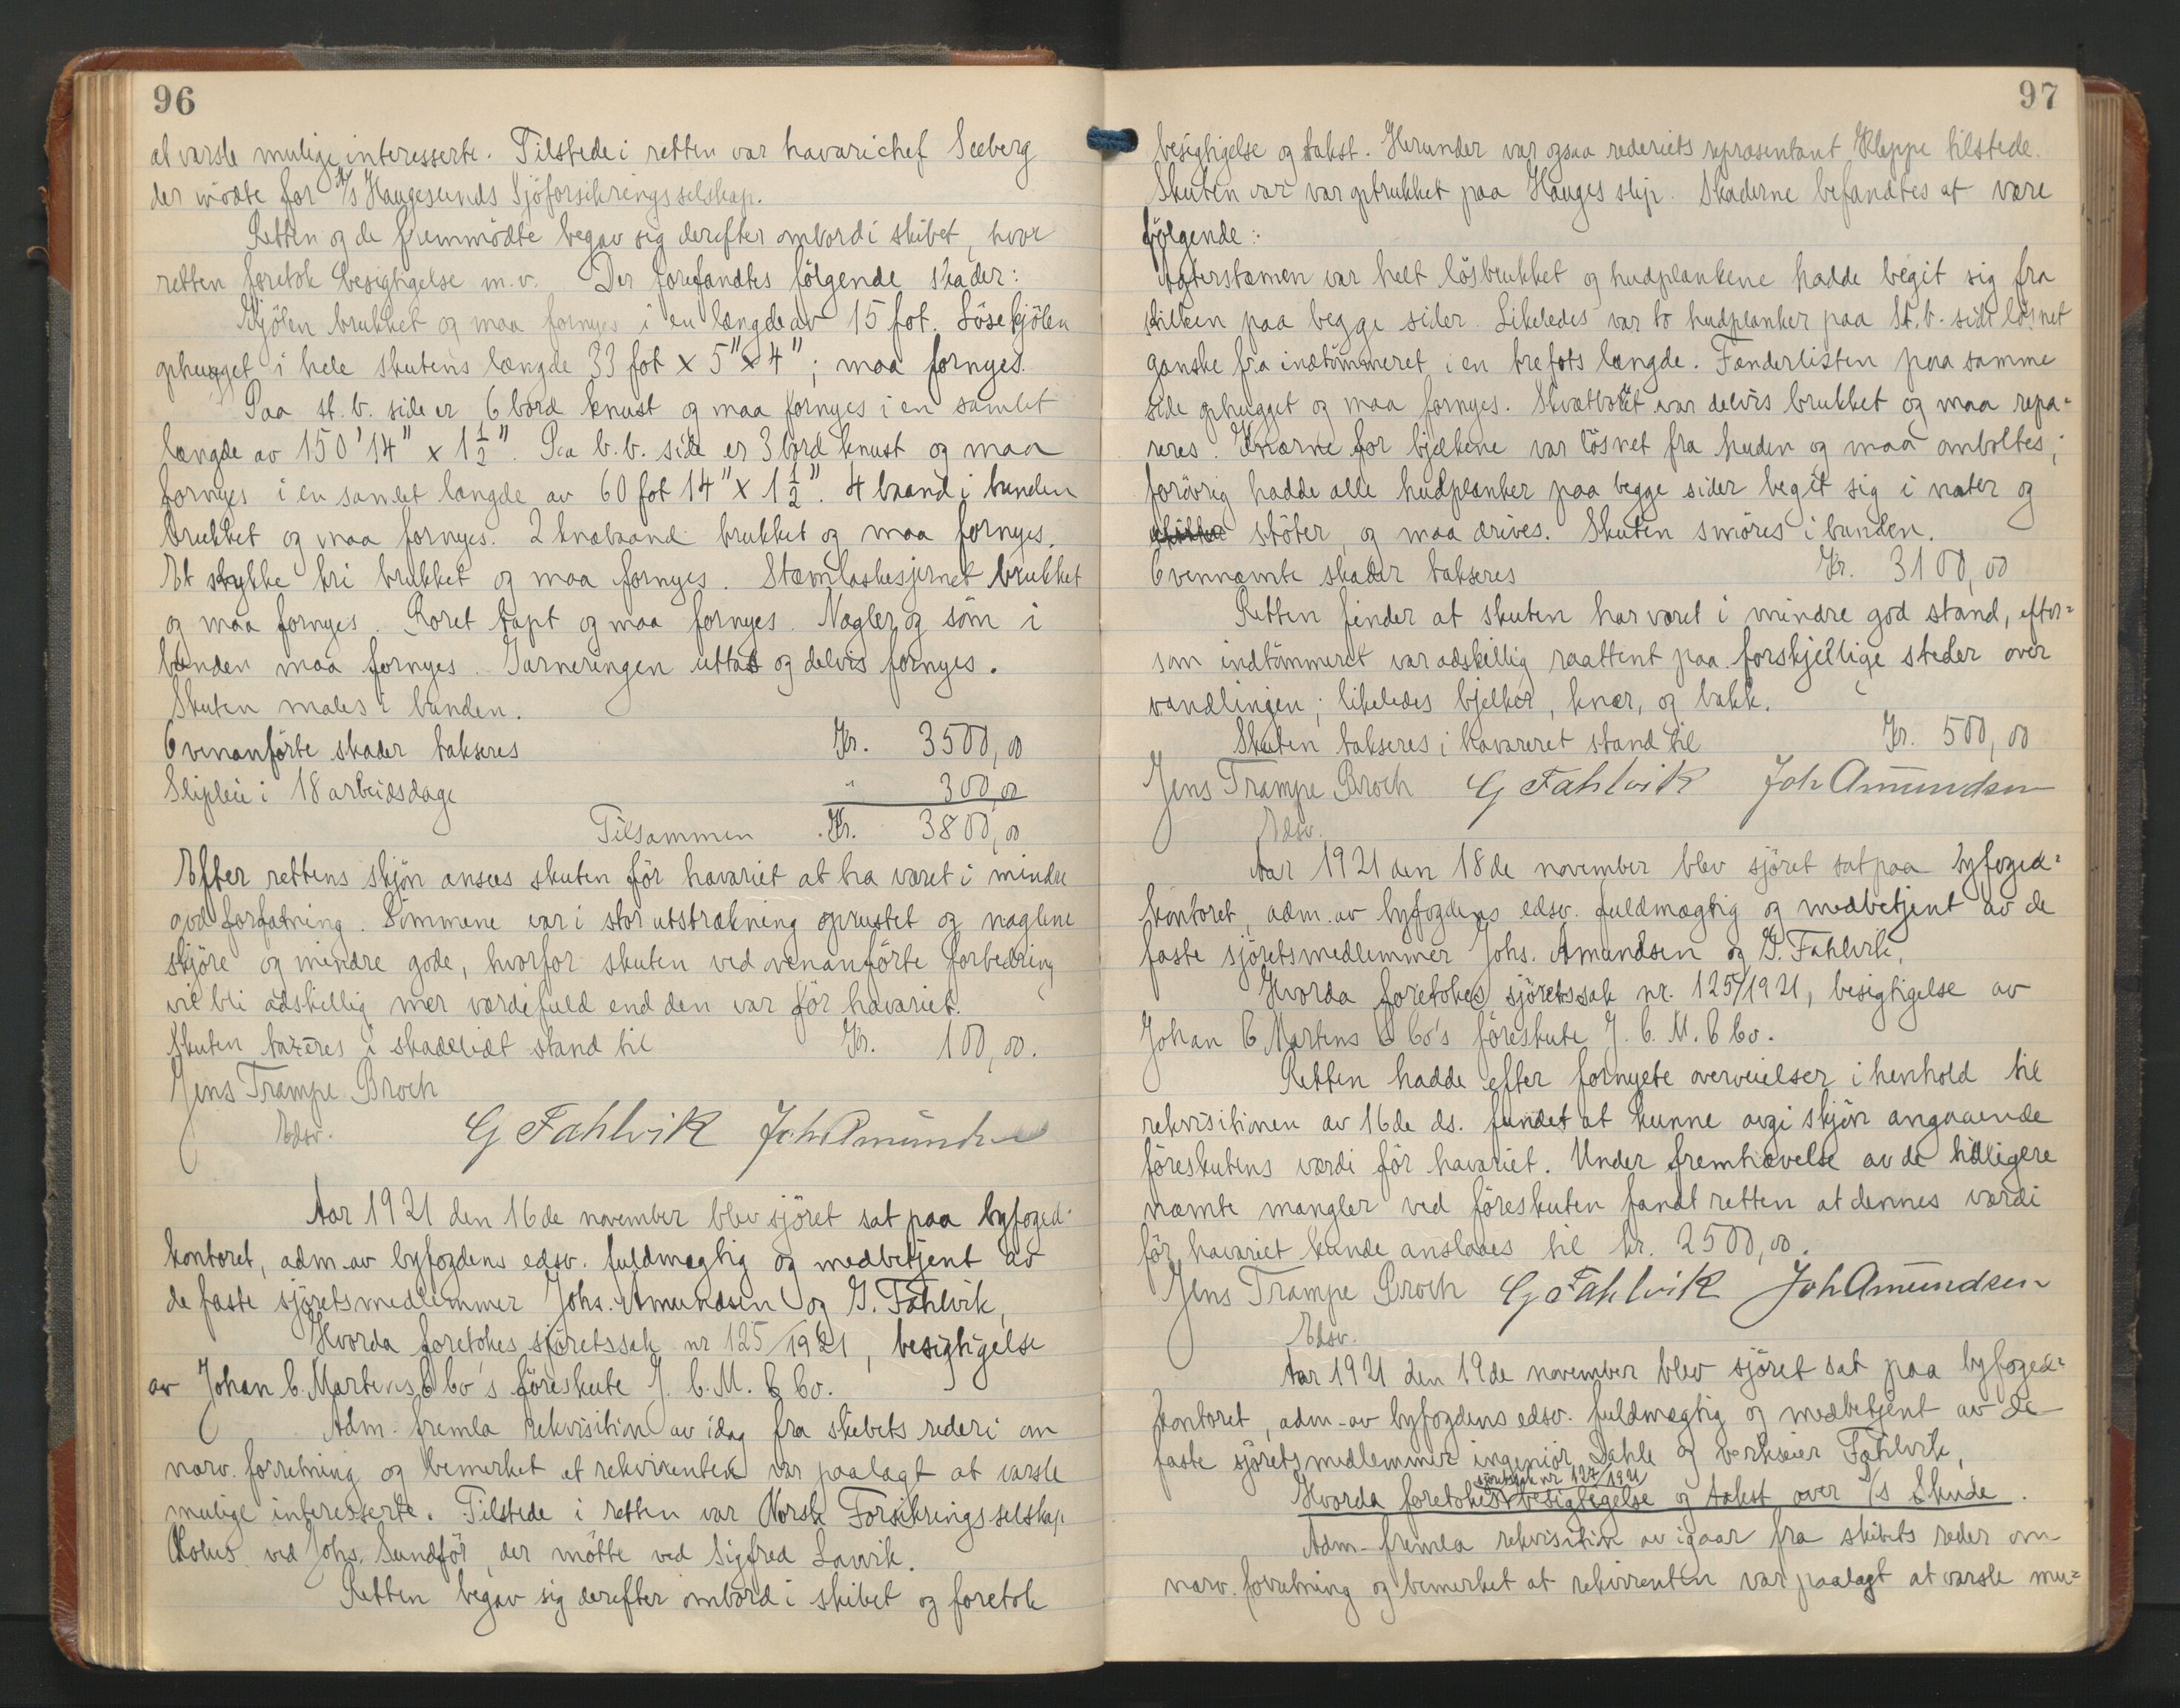 96
at varsle mulige interesserte. Tilstede i retten var havarichef Seeberg
der mödte for A/S Haugesunds Sjöforsikringsselskap.
Retten og de fremmödte begav sig derefter ombord i skibet, hvor
retten foretok besigtigelse m.v. Der forefandtes fölgende skader:
Kjölen brukket og maa fornyes i en længde av 15 fot. Lösekjölen
ophugget i hele skutens længde 33 fot x 5" x 4"; maa fornyes.
Paa st.b. side er 6 bord knust og maa fornyes i en samlet
længde av 150' 14" x 1 1/2". Paa b.b. side er 3 bord knust og maa
fornyes i en samlet længde av 60 fot 14" x 1 1/2". 4 baand i bunden
brukket og maa fornyes. 2 knæbaand brukket og maa fornyes.
Et stykke kri brukket og maa fornyes. Stævnlaskesjernet brukket
og maa fornyes. Roret tapt og maa fornyes. Nagler og söm i
bunden maa fornyes. Garneringen uttas og delvis fornyes.
Skuten males i bunden.
Ovenanförte skader takseres Kr. 3500,00
Slipleie i 18 arbeidsdage " 300,00
Tilsammen Kr. 3800,00
Efter rettens skjön ansees skuten för havariet at ha været i mindre
god forfatning. Sömmene var i stor utstrækning oprustet og naglene
skjöre og mindre gode, hvorfor skuten ved ovenanförte forbedring
vil bli adskillig mer værdifuld end den var för havariet.
Skuten taxeres i skadelidt stand til Kr. 100,00.
Jens Trampe Broch
Edsv. G Fahlvik Joh Amundsen
Aar 1921 den 16de november blev sjöret sat paa byfoged-
kontoret, adm. av byfogdens edsv. fuldmægtig og medbetjent av
de faste sjöretsmedlemmer Johs. Amundsen og G. Fahlvik,
Hvorda foretokes sjöretssak nr 125/1921, besigtigelse
av Johan C. Martens & Co's föreskute J. C. M. & Co.
Adm. fremla rekvisition av idag fra skibets rederi om
nærv. forretning og bemerket at rekvirenten var paalagt at varsle
mulige interesserte. Tilstede i retten var Norsk Forsikringsselskap
Æolus ved Johs. Sundför, der mötte ved Sigfred Lauvik.
Retten begav sig derefter ombord i skibet og foretok
97
besigtigelse og takst. Herunder var ogsaa rederiets repræsentant Kleppe tilstede.
Skuten var var optrukket paa Hauges slip. Skaderne befandtes at være
fölgende:
Agterstævnen var helt lösbrukket og hudplankene hadde begit sig fra
stilken paa begge sider. Likeledes var to hudplanker paa st.b. side lösnet
ganske fra indtömmeret i en trefots længde. Fenderlisten paa samme
side ophugget og maa fornyes. Skvætbordet var delvis brukket og maa repa=
reres. Knærne for bjelkene var lösnet fra huden og maa omboltes;
forövrig hadde alle hudplanker paa begge sider begit sig i nater og
stöter, og maa drives. Skuten smöres i bunden.
Ovennævnte skader takseres Kr. 3100,00
Retten finder at skuten har været i mindre god stand, efter=
som indtömmeret var adskillig raattent paa forskjellige steder over
vandlinjen; likeledes bjelker, knær, og bakk.
Skuten takseres i havareret stand til Kr. 500,00
Jens Trampe Broch G Fahlvik Joh Amundsen
Edsv.
Aar 1921 den 18de november blev sjöret sat paa byfoged=
kontoret, adm. av byfogdens edsv. fuldmægtig og medbetjent av de
faste sjöretsmedlemmer Johs. Amundsen og G. Fahlvik,
Hvorda foretokes sjöretssak nr. 125/1921, besigtigelse av
Johan C Martens & Co's föreskute J. C. M. & Co.
Retten hadde efter fornyete overveielser i henhold til
rekvisitionen av 16de ds. fundet at kunne avgi skjön angaaende
föreskutens værdi för havariet. Under fremhævelse av de tidligere
nævnte mangler ved föreskuten fandt retten at dennes værdi
för havariet kunde anslaaes til kr. 2500,00.
Jens Trampe Broch G Fahlvik Joh Amundsen
Edsv.
Aar 1921 den 19de november blev sjöret sat paa byfoged=
kontoret, adm. av byfogdens edsv. fuldmægtig og medbetjent av de
faste sjöretsmedlemmer ingeniör Dahle og verkseier Fahlvik,
Hvorda foretokes sjöretssak nr 127/1921 besigtigelse og takst over D/S Skude.
Adm. fremla rekvisition av igaar fra skibets reder om
nærv. forretning og bemerket at rekvirenten var paalagt at varsle mu=